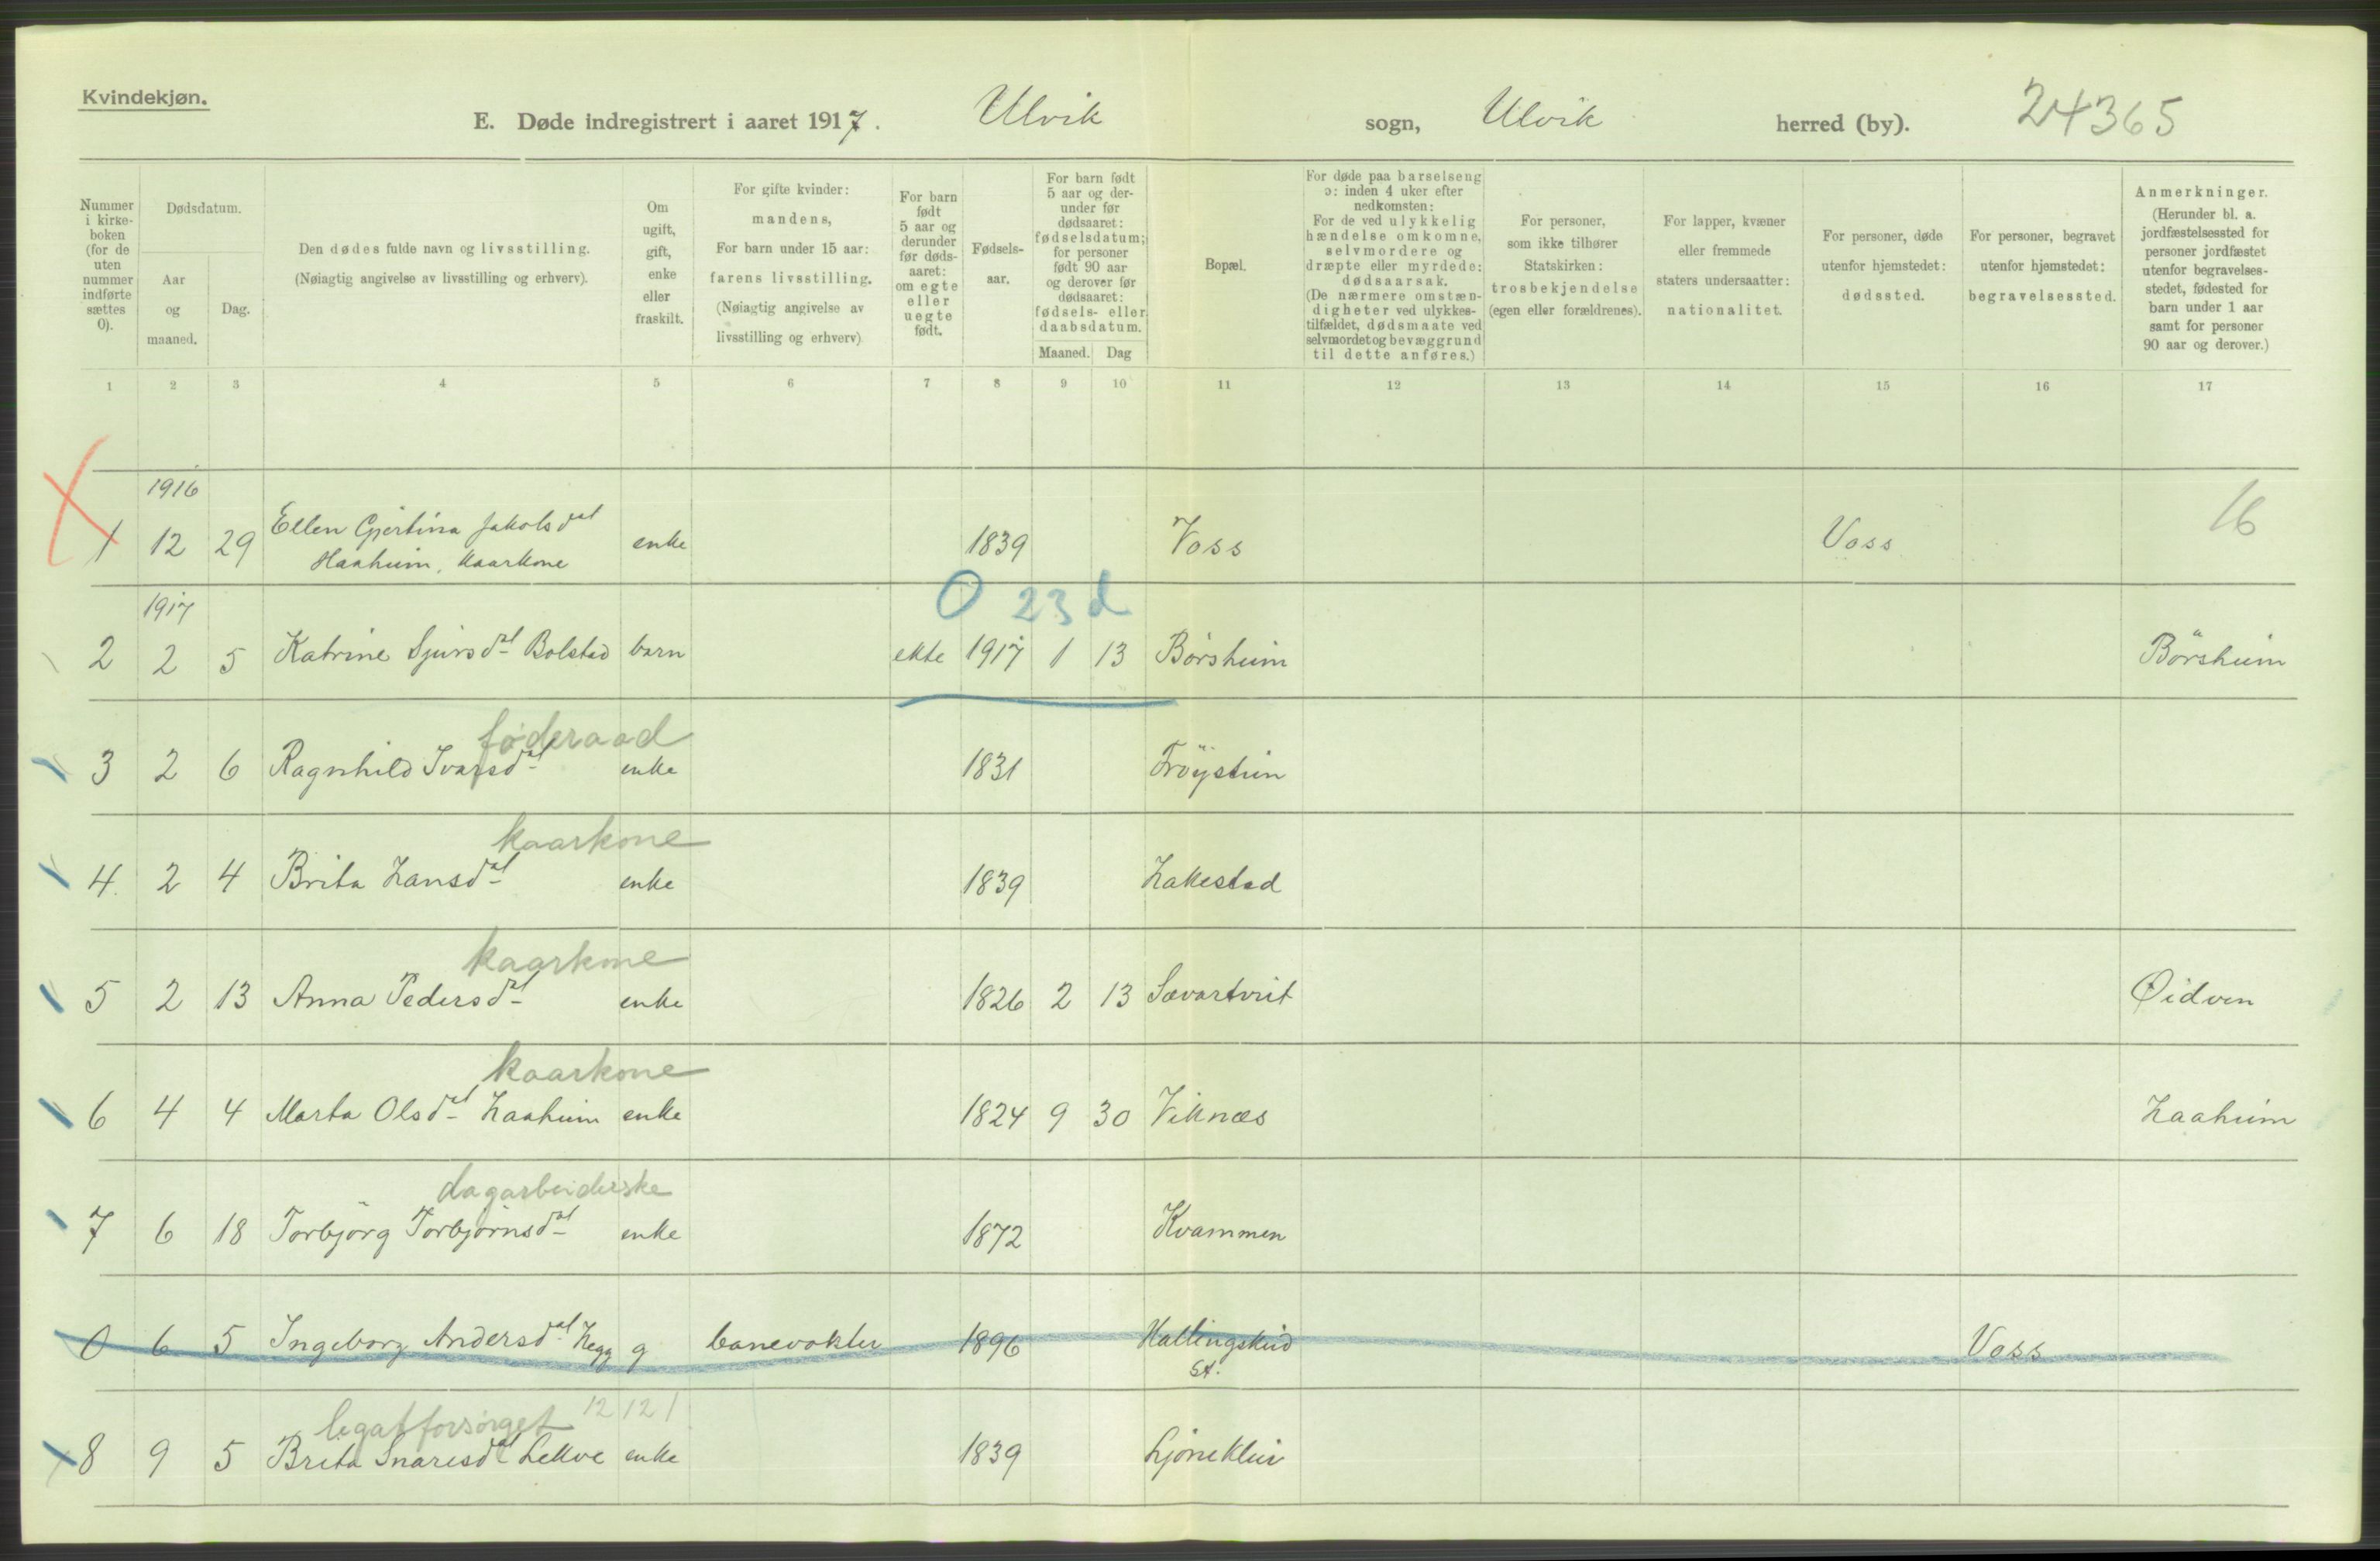 Kvindekjøn.
E. Døde indregistrert i aaret 1917. Ulvik sogn, Ulvik herred (by). 24365
Nummer i kirke-boken (for de uten nummer indførte sættes 0).
Dødsdatum.
Aar og maaned.
Dag.
Den dødes fulde navn og livsstilling.
(Nøiagtig angivelse av livsstilling og erhverv).
Om ugift, gift, enke eller fraskilt.
For gifte kvinder:
mandens,
For barn under 15 aar:
farens livsstilling.
(Nøiagtig angivelse av
livsstilling og erhverv)
For barn født 5 aar og derunder før døds-aaret: om egte eller uegte født.
Fødsels-aar.
For barn født 5 aar og der-under før dødsaaret: fødselsdatum; for personer født 90 aar og derover før dødsaaret: fødsels- eller daabsdatum.
Maaned. Dag
Bopæl.
For døde paa barselseng
ɔ: inden 4 uker efter
nedkomsten:
For de ved ulykkelig
hændelse omkomne,
selvmordere og
dræpte eller myrdede:
dødsaarsak.
(De nærmere omstæn-
digheter ved ulykkes-
tilfældet, dødsmaate ved
selvmordet og bevæggrund
til dette anføres.)
For personer,
som ikke tilhører
Statskirken:
trosbekjendelse
(egen eller forældrenes).
For lapper, kvæner
eller fremmede
staters undersaatter:
nationalitet.
For personer, døde
utenfor hjemstedet:
dødssted.
For personer, begravet
utenfor hjemstedet:
begravelsessted.
Anmerkninger.
(Herunder bl. a.
jordfæstelsessted for
personer jordfæstet
utenfor begravelses-
stedet, fødested for
barn under 1 aar
samt for personer
90 aar og derover.)
1 2 3 4 5 6 7 8 9 10 11 12 13 14 15 16 17
1916
1 12 29 Ellen Gjertina Jakobsdat Haaheim, kaarkone enke 1839 Voss Voss 16
1917
0 23 d
2 2 5 Katrine Sjursdat Bolstad barn ekte 1917 1 13 Börsheim Börsheim
føderaad
3 2 6 Ragnhild Ivarsdat enke 1831 Tröystein
kaarkone
4. 2 4 Brita Hansdat enke 1839 Hakestad
kaarkone
5 2 13 Anna Pedersdat enke 1826 2 13 Sævartveit Øidven
kaarkone
6 4 4 Marta Olsdat Haaheim enke 1824 9 30 Viknæs Haaheim
dagarbeiderske
7 6 18 Torbjörg Torbjörnsdat enke 1872 Kvammen
0 6 5 Ingeborg Andersdat Hegg g banevokter 1896 Hallingskeid St. Voss
legatforsørget 12 12 1
8 9 5 Brita Snaresdat Lekve enke 1839